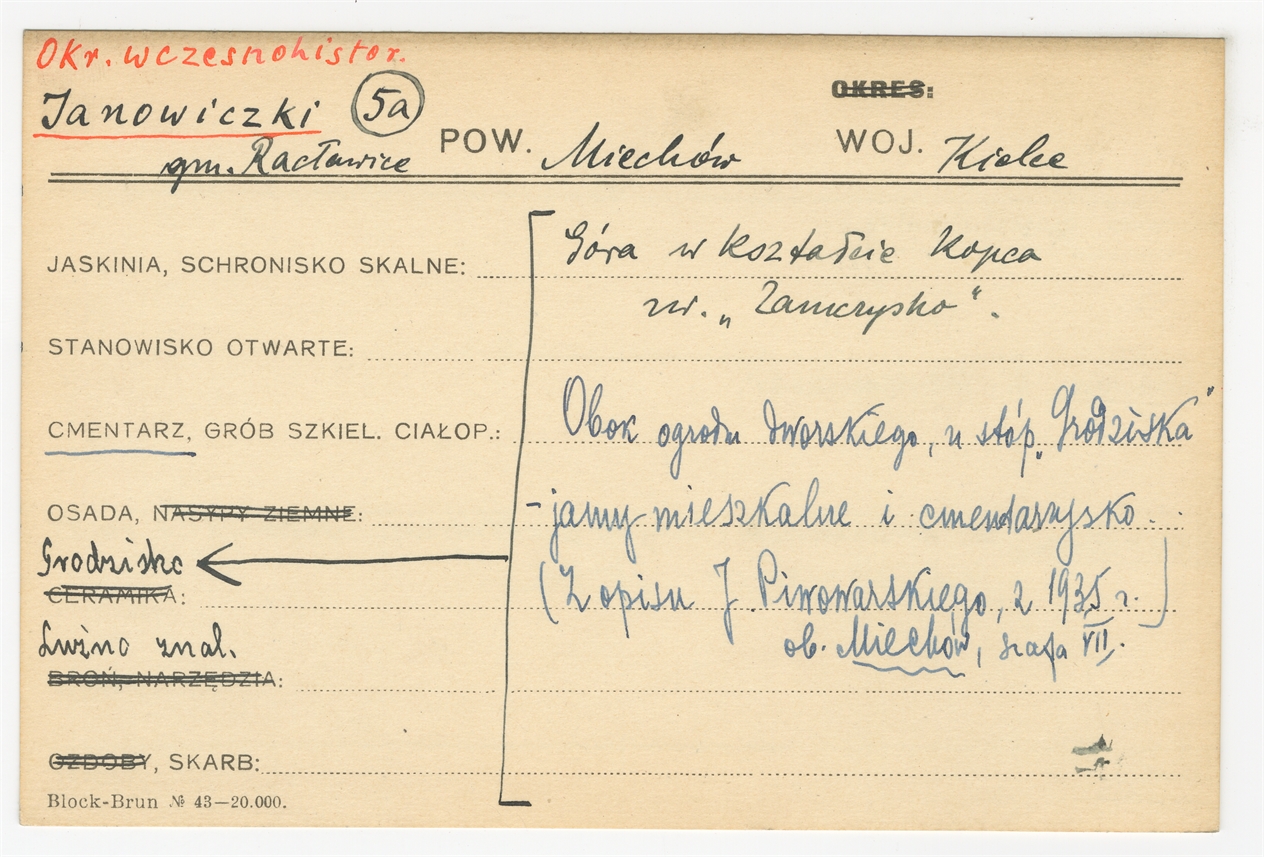 Okr. wczesnohistor.
Janowiczki 5a
OKRES:
gm. Racławice POW. Miechów WOJ. Kielce
JASKINIA, SCHRONISKO SKALNE: Góra w kształcie Kopca
zw. „Zamczysko".
STANOWISKO OTWARTE:
CMENTARZ, GRÓB SZKIEL. CIAŁOP.: Obok ogrodu dworskiego, u stóp „Grodziska"
OSADA, NASYPY ZIEMNE: - jamy mieszkalne i cmentarzysko.
Grodzisko
CERAMIKA: (Z opisu J. Piwowarskiego, z 1935 r.)
Luźno znal. ob. Miechów, szafa VII.
BROŃ, NARZĘDZIA:
OZDOBY, SKARB:
Block-Brun № 43—20.000.